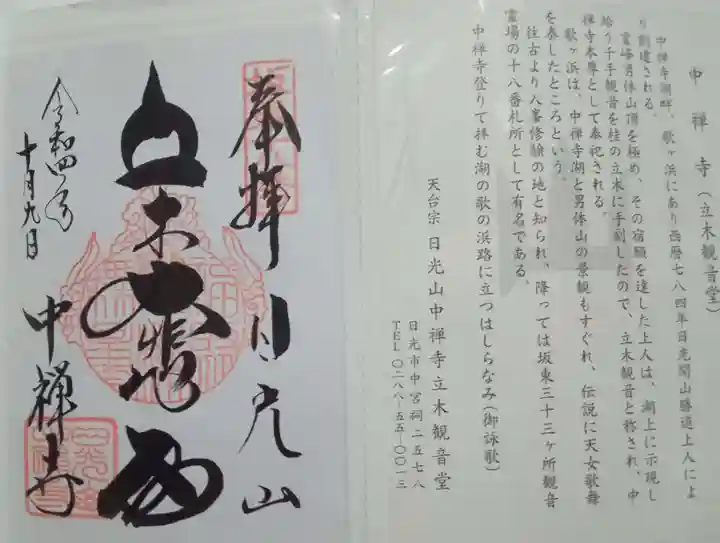 中禅寺(立木観音堂)
中禅寺湖畔、歌ヶ浜にあり西暦七八四年日光開山勝道上人によ
り創建される。
霊峰男体山頂を極め、その宿願を達した上人は、湖上に示現し
給う千手観音を桂の立木に手刻したので、立木観音と称され、中
禅寺本尊として奉祀される。
歌ヶ浜は、中禅寺湖と男体山の景観もすぐれ、伝説に天女歌舞
を奏したところという。
往古より入峯修験の地と知られ、降っては坂東三十三ヶ所観音
霊場の十八番札所として有名である。
中禅寺登りて拝む湖の歌の浜路に立つはしらなみ(御詠歌)
天台宗 日光山中禅寺立木観音堂
日光市中宮祠二五七八
TEL〇二八八-五五-〇〇一三
奉拝 日光山
立木大悲
令和四年
十月九日
中禅寺